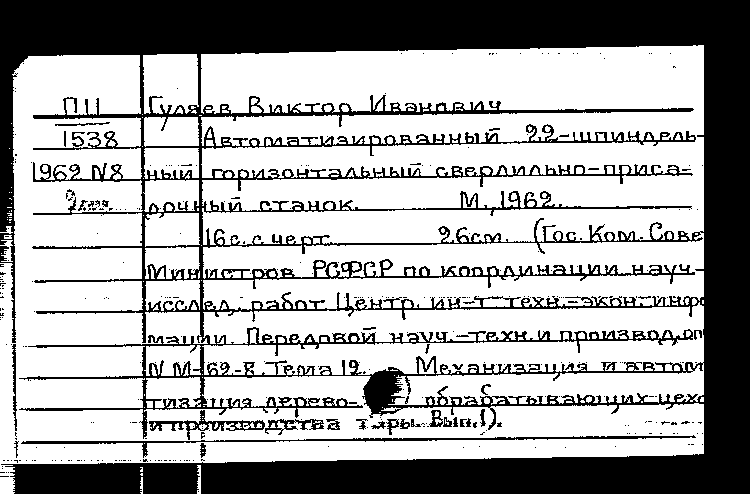 П11 Гуляев, Виктор Иванович
1538 Автоматизированный 22-шпиндель-
1962 N8 ный горизонтальный свердлильно-приса-
2 экз. дочный станок. М., 1962.
16с. с черт. 26см. (Гос. Ком. Сове
Министров РСФСР по координации науч.-
исслед. работ Центр. ин-т техн.-экон. инфо
мации. Передовой науч.-техн. и производ. оп
N М-62-8. Тема 12. Механизация и автом
тизация дерево- обрабатывающих цехо
и производства тары. Вып. 1).